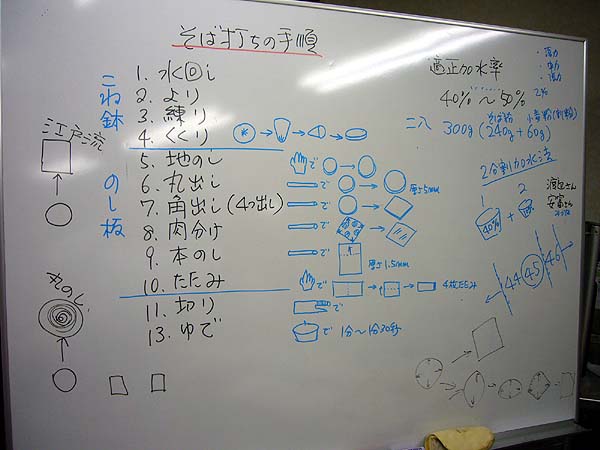 そば打ちの手順
こね鉢
1. 水回し
2. より
3. 練り
4. くくり
のし板
5. 地のし
6. 丸出し
厚さ5mm
7. 角出し(4つ出し)
8. 肉分け
9. 本のし
厚さ1.5mm
10. たたみ
で
4枚たたみ
11. 切り
で
13. ゆで
で 1分〜1分30秒
江戸流
丸のし
適正加水率
40%〜50%
そば粉 小麦粉
二八 300g (240g + 60g)
2分割加水法
1 2
40% +
44 45 46